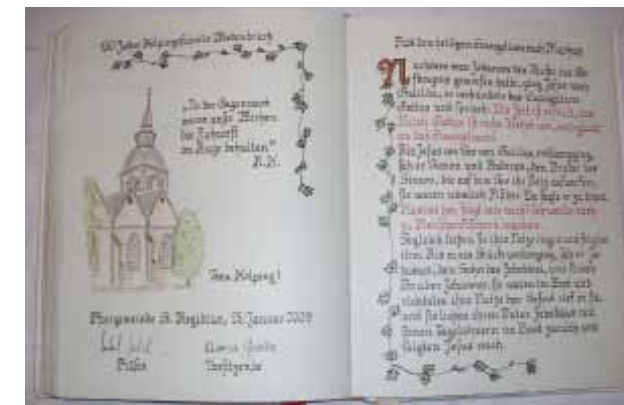 100 Jahre Kolpingsfamilie Wiedenbrück
„In der Gegenwart
muss unser Wirken
die Zukunft
im Auge behalten."
A. K.
Treu Kolping!
Pfarrgemeinde St. Aegidius, 25. Januar 2009
Präses
Vorsitzende
Aus dem heiligen Evangelium nach Markus
Nachdem man Johannes den Täufer ins Ge-
fängnis geworfen hatte, ging Jesus nach
Galiläa, er verkündete das Evangelium
Gottes und sprach: Die Zeit ist erfüllt, das
Reich Gottes ist nahe. Kehrt um, und glaubt
an das Evangelium!
Als Jesus am See von Galiläa entlangging,
sah er Simon und Andreas, den Bruder des
Simon, die auf dem See ihr Netz auswarfen;
sie waren nämlich Fischer. Da sagte er zu ihnen:
Kommt her, folgt mir nach! Ich werde euch
zu Menschenfischern machen.
Sogleich ließen sie ihre Netze liegen und folgten
ihm. Als er ein Stück weiterging, sah er Ja-
kobus, den Sohn des Zebedäus, und seinen
Bruder Johannes; sie waren im Boot und
richteten ihre Netze her. Sofort rief er sie,
und sie ließen ihren Vater Zebedäus mit
seinen Tagelöhnern im Boot zurück und
folgten Jesus nach.